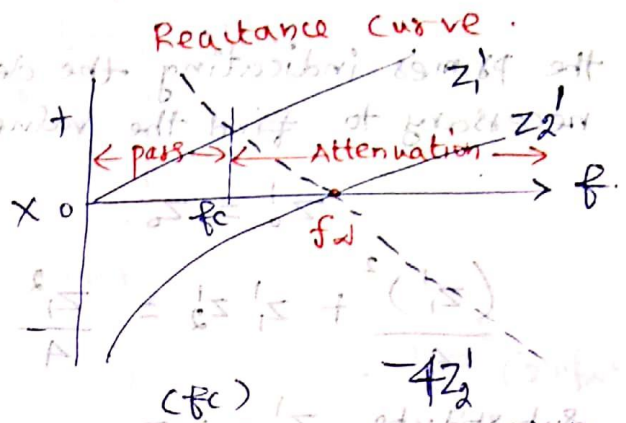 Reactance curve.
Z₁'
+
Z₂'
pass
Attenuation
X 0
f
fc
f∞
-
-4Z₂'
(fc)